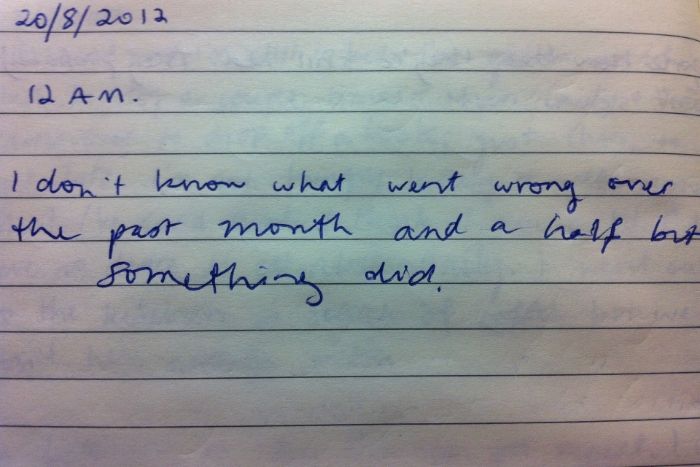 20/8/2012
12 AM.
I don't know what went wrong over
the past month and a half but
something did.